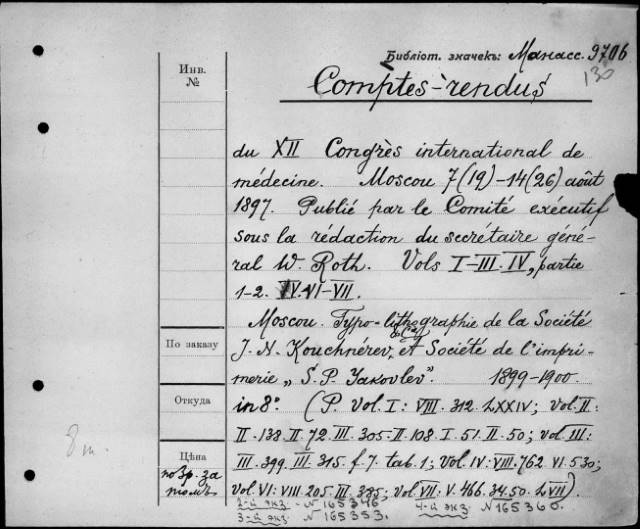 Библіот. значекъ: Манасс. 9706
130
Инв.
№
Comptes-rendus
du XII Congrès international de
médecine. Moscou 7(19)-14(26) août
1897. Publié par le Comité exécutif
sous la rédaction du secrétaire géné-
ral W. Roth. Vols I-III. IV, partie
1-2. VI-VII.
Moscou. Typo-lithographie de la Société
J. N. Kouchnérev, et Société de l'impri-
merie „S. P. Yakovlev". 1899-1900.
По заказу
Откуда
in 8° (P. Vol. I: VIII. 312. LXXIV; Vol. II:
II. 138. II. 72. III. 305-II. 108. I. 51. II. 50; vol III:
8 т.
Цѣна
III. 399. III. 315. f. 7. tab. 1; Vol. IV: VIII. 762. VI. 530;
по Зр. за
томъ
Vol. VI: VIII. 205. III. 385; Vol. VII: V. 466. 34. 50. LVII).
2-й экз. - N 165346
4-й экз. N 165360.
3-й экз. N 165353.